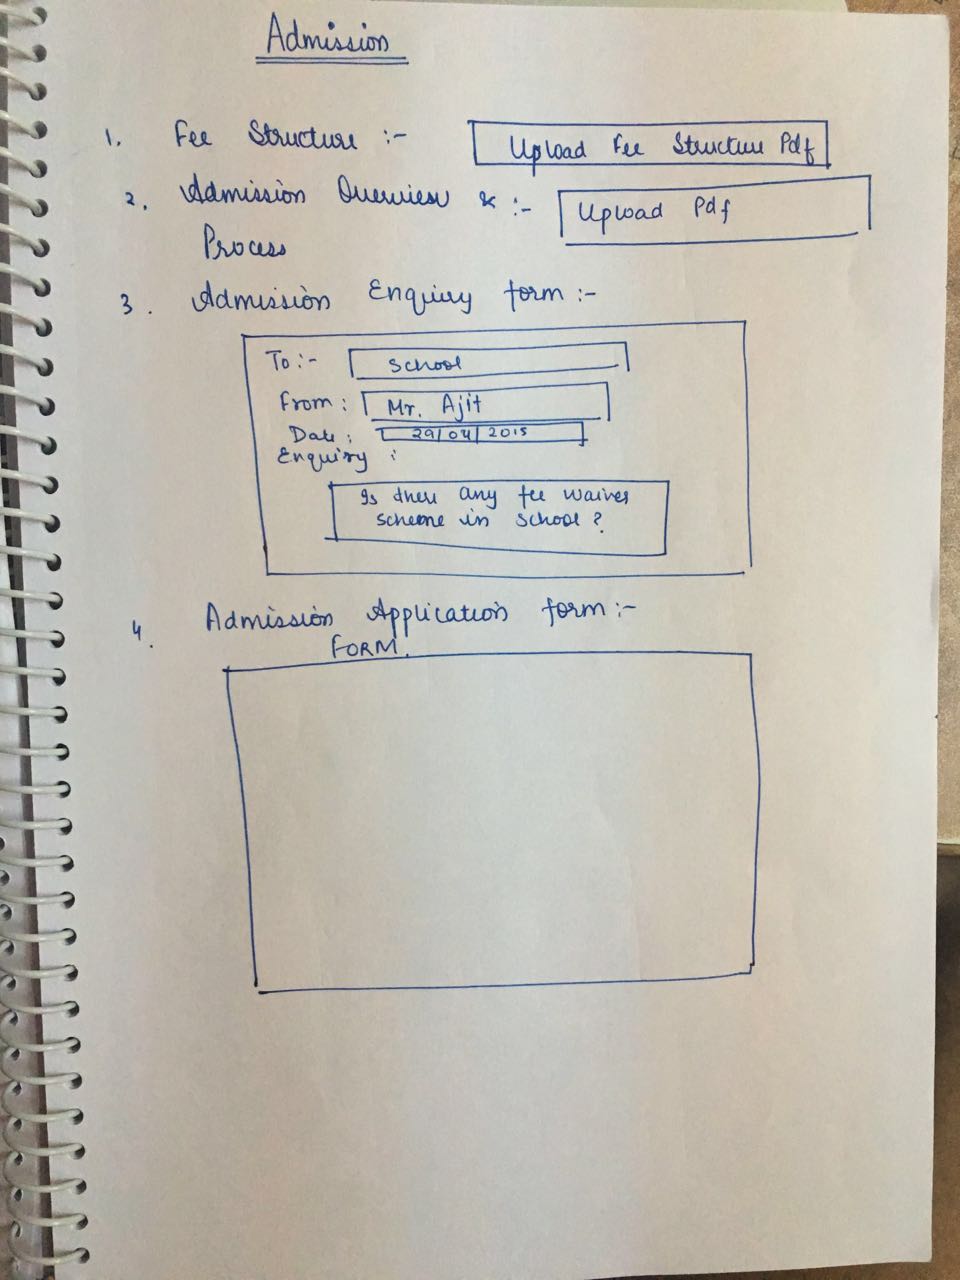 Admission
1. Fee Structure :- Upload Fee Structure Pdf
2. Admission Overview & :- Upload Pdf
Process
3. Admission Enquiry form :-
To :- School
From : Mr. Ajit
Date : 29/04/2015
Enquiry :
Is there any fee waiver
scheme in school ?
4. Admission Application form :-
FORM.